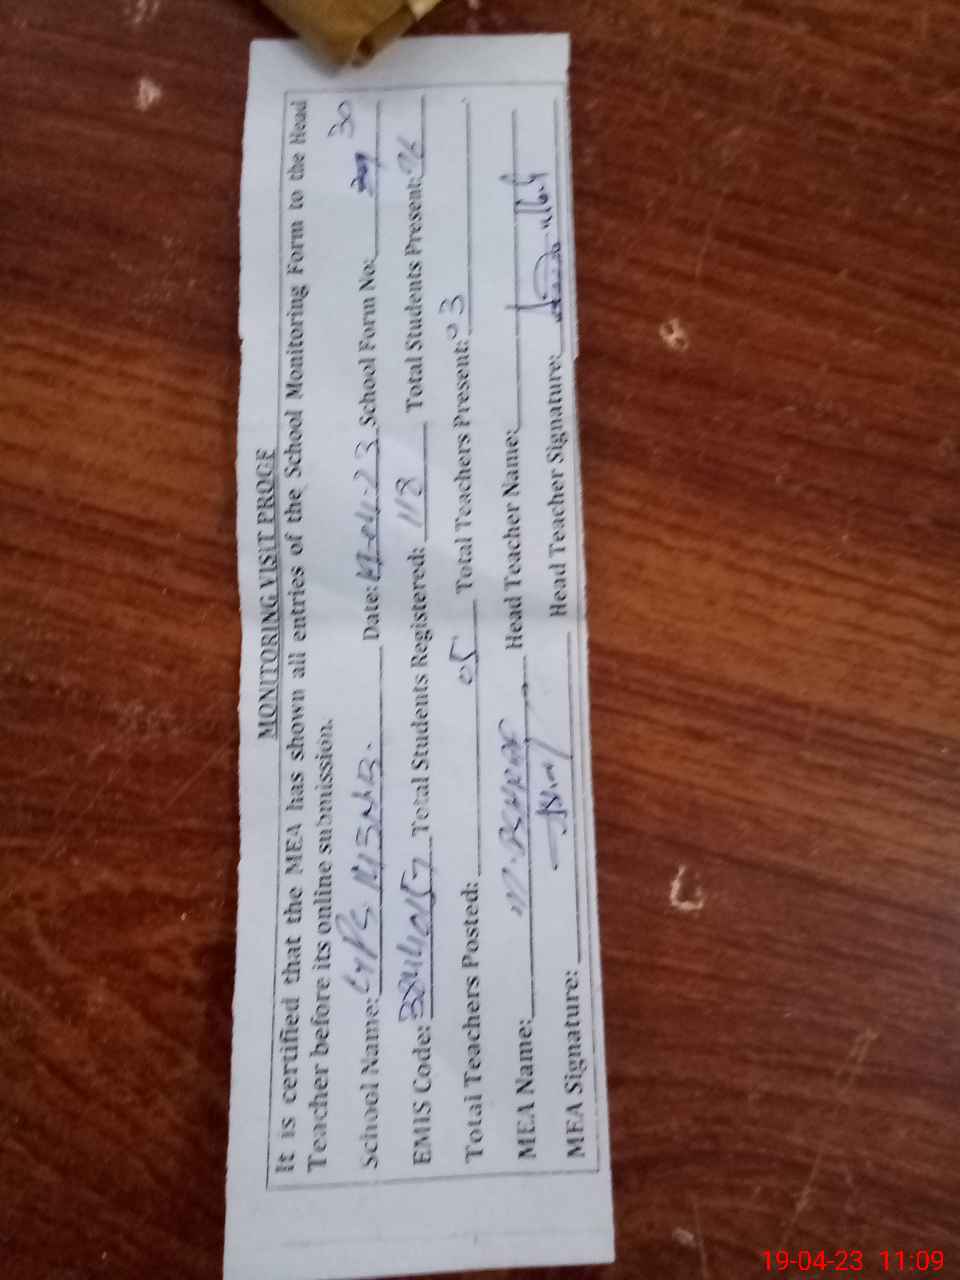 MONITORING VISIT PROOF
It is certified that the MEA has shown all entries of the School Monitoring Form to the Head
Teacher before its online submission.
School Name: GPS Date: 19-04-23 School Form No: 30
EMIS Code: Total Students Registered: 118 Total Students Present: 96
Total Teachers Posted: 05 Total Teachers Present: 03
MEA Name: Head Teacher Name:
MEA Signature: Head Teacher Signature:
19-04-23 11:09